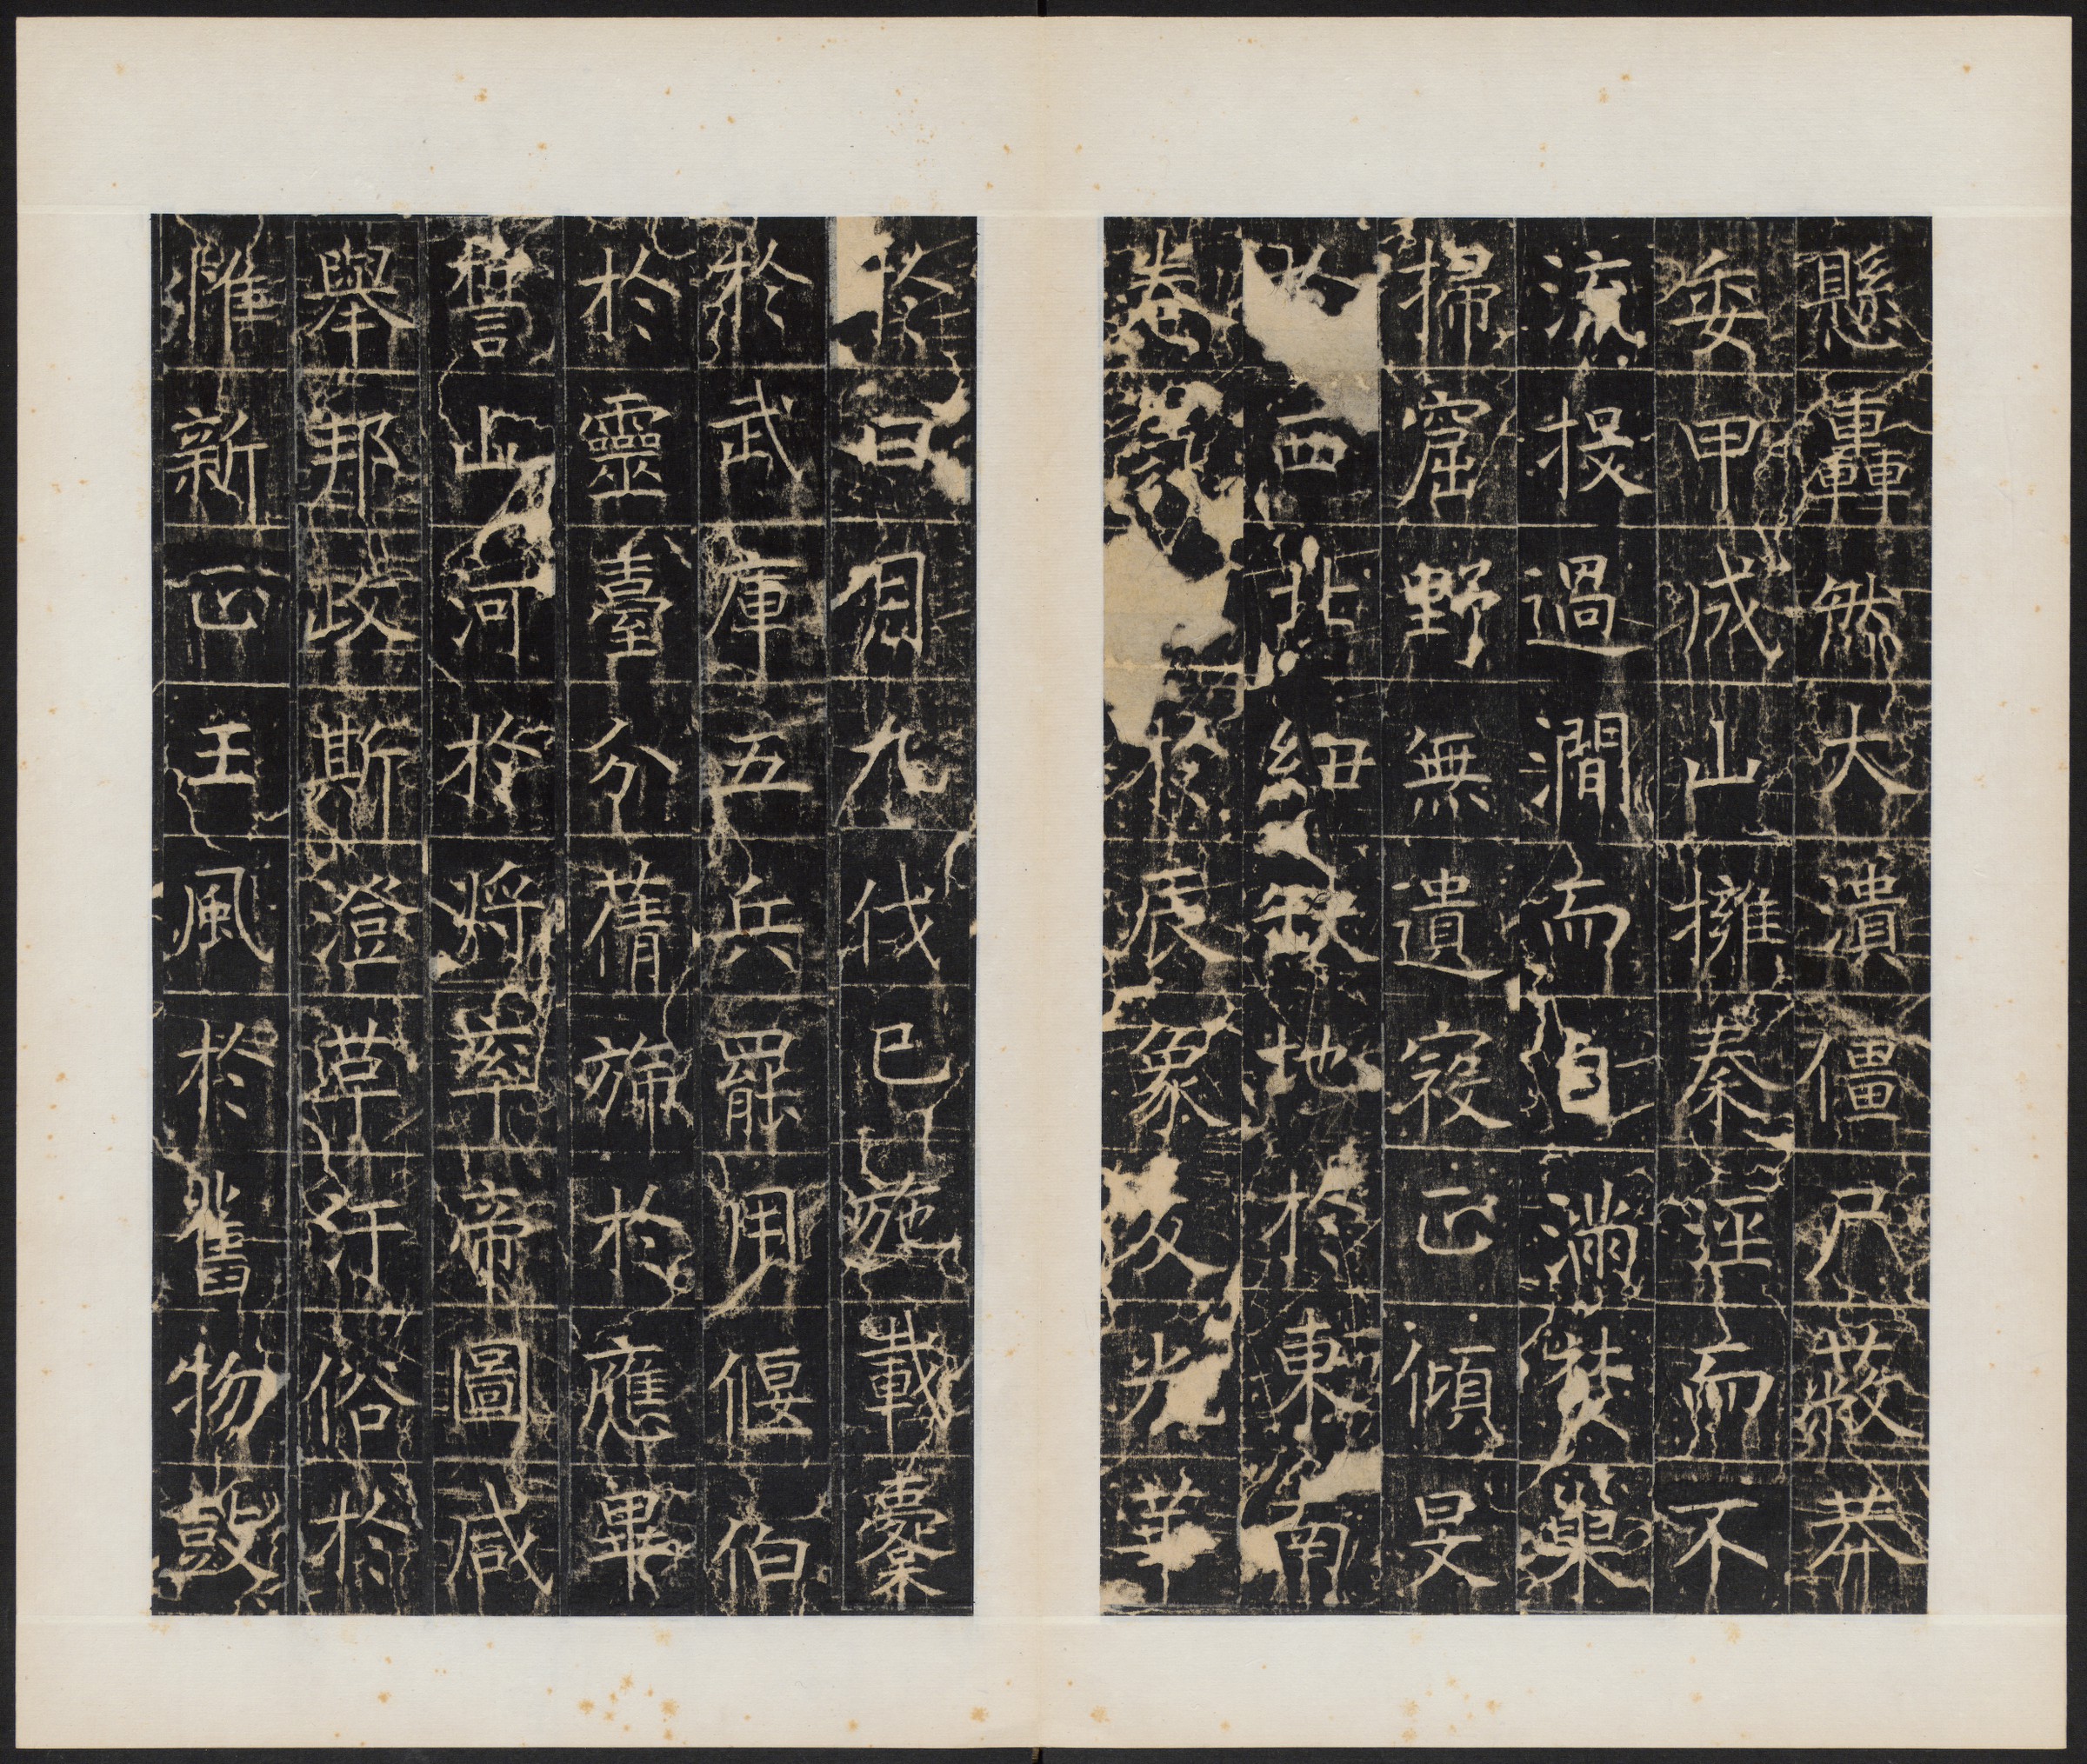 懸轟然大潰僵尸蔽莽
委甲成山擁秦涇而不
流投過澗而自滿焚巢
掃窟野無遺寇已傾旻
於西北紐缺地於東南
卷氛於辰象反光華
於日月九伐已施載櫜
於武庫五兵罷用偃伯
於靈臺分蒨旆於應畢
誓山河於將率帝圖咸
舉邦政斯澄革汙俗於
惟新正王風於舊物鼓